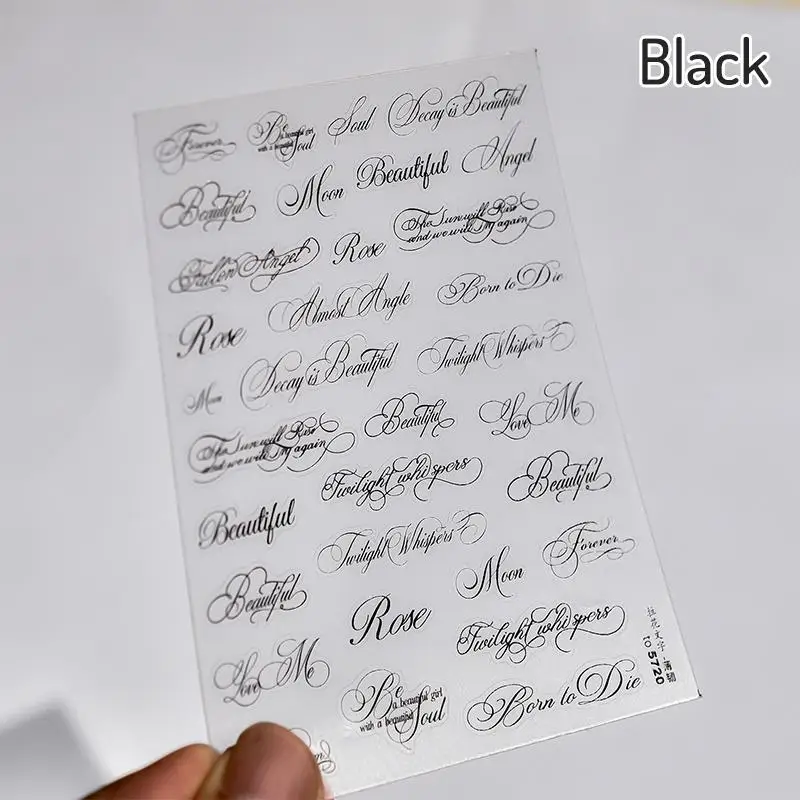 Black
Forever
Be
a beautiful girl
with a beautiful
Soul
Soul
Decay is Beautiful
Beautiful
Moon
Beautiful
Angel
Fallen Angel
Rose
The Sun will Rise
and we will Try again
Rose
Almost Angle
Born to Die
Moon
Decay is Beautiful
Twilight Whispers
The Sun will Rise
and we will Try again
Beautiful
Love Me
Beautiful
Twilight whispers
Beautiful
Twilight Whispers
Moon
Forever
Beautiful
Rose
Twilight whispers
Love Me
Be
a beautiful girl
with a beautiful
Soul
Born to Die
拉花文字·薄韧
TO 5720